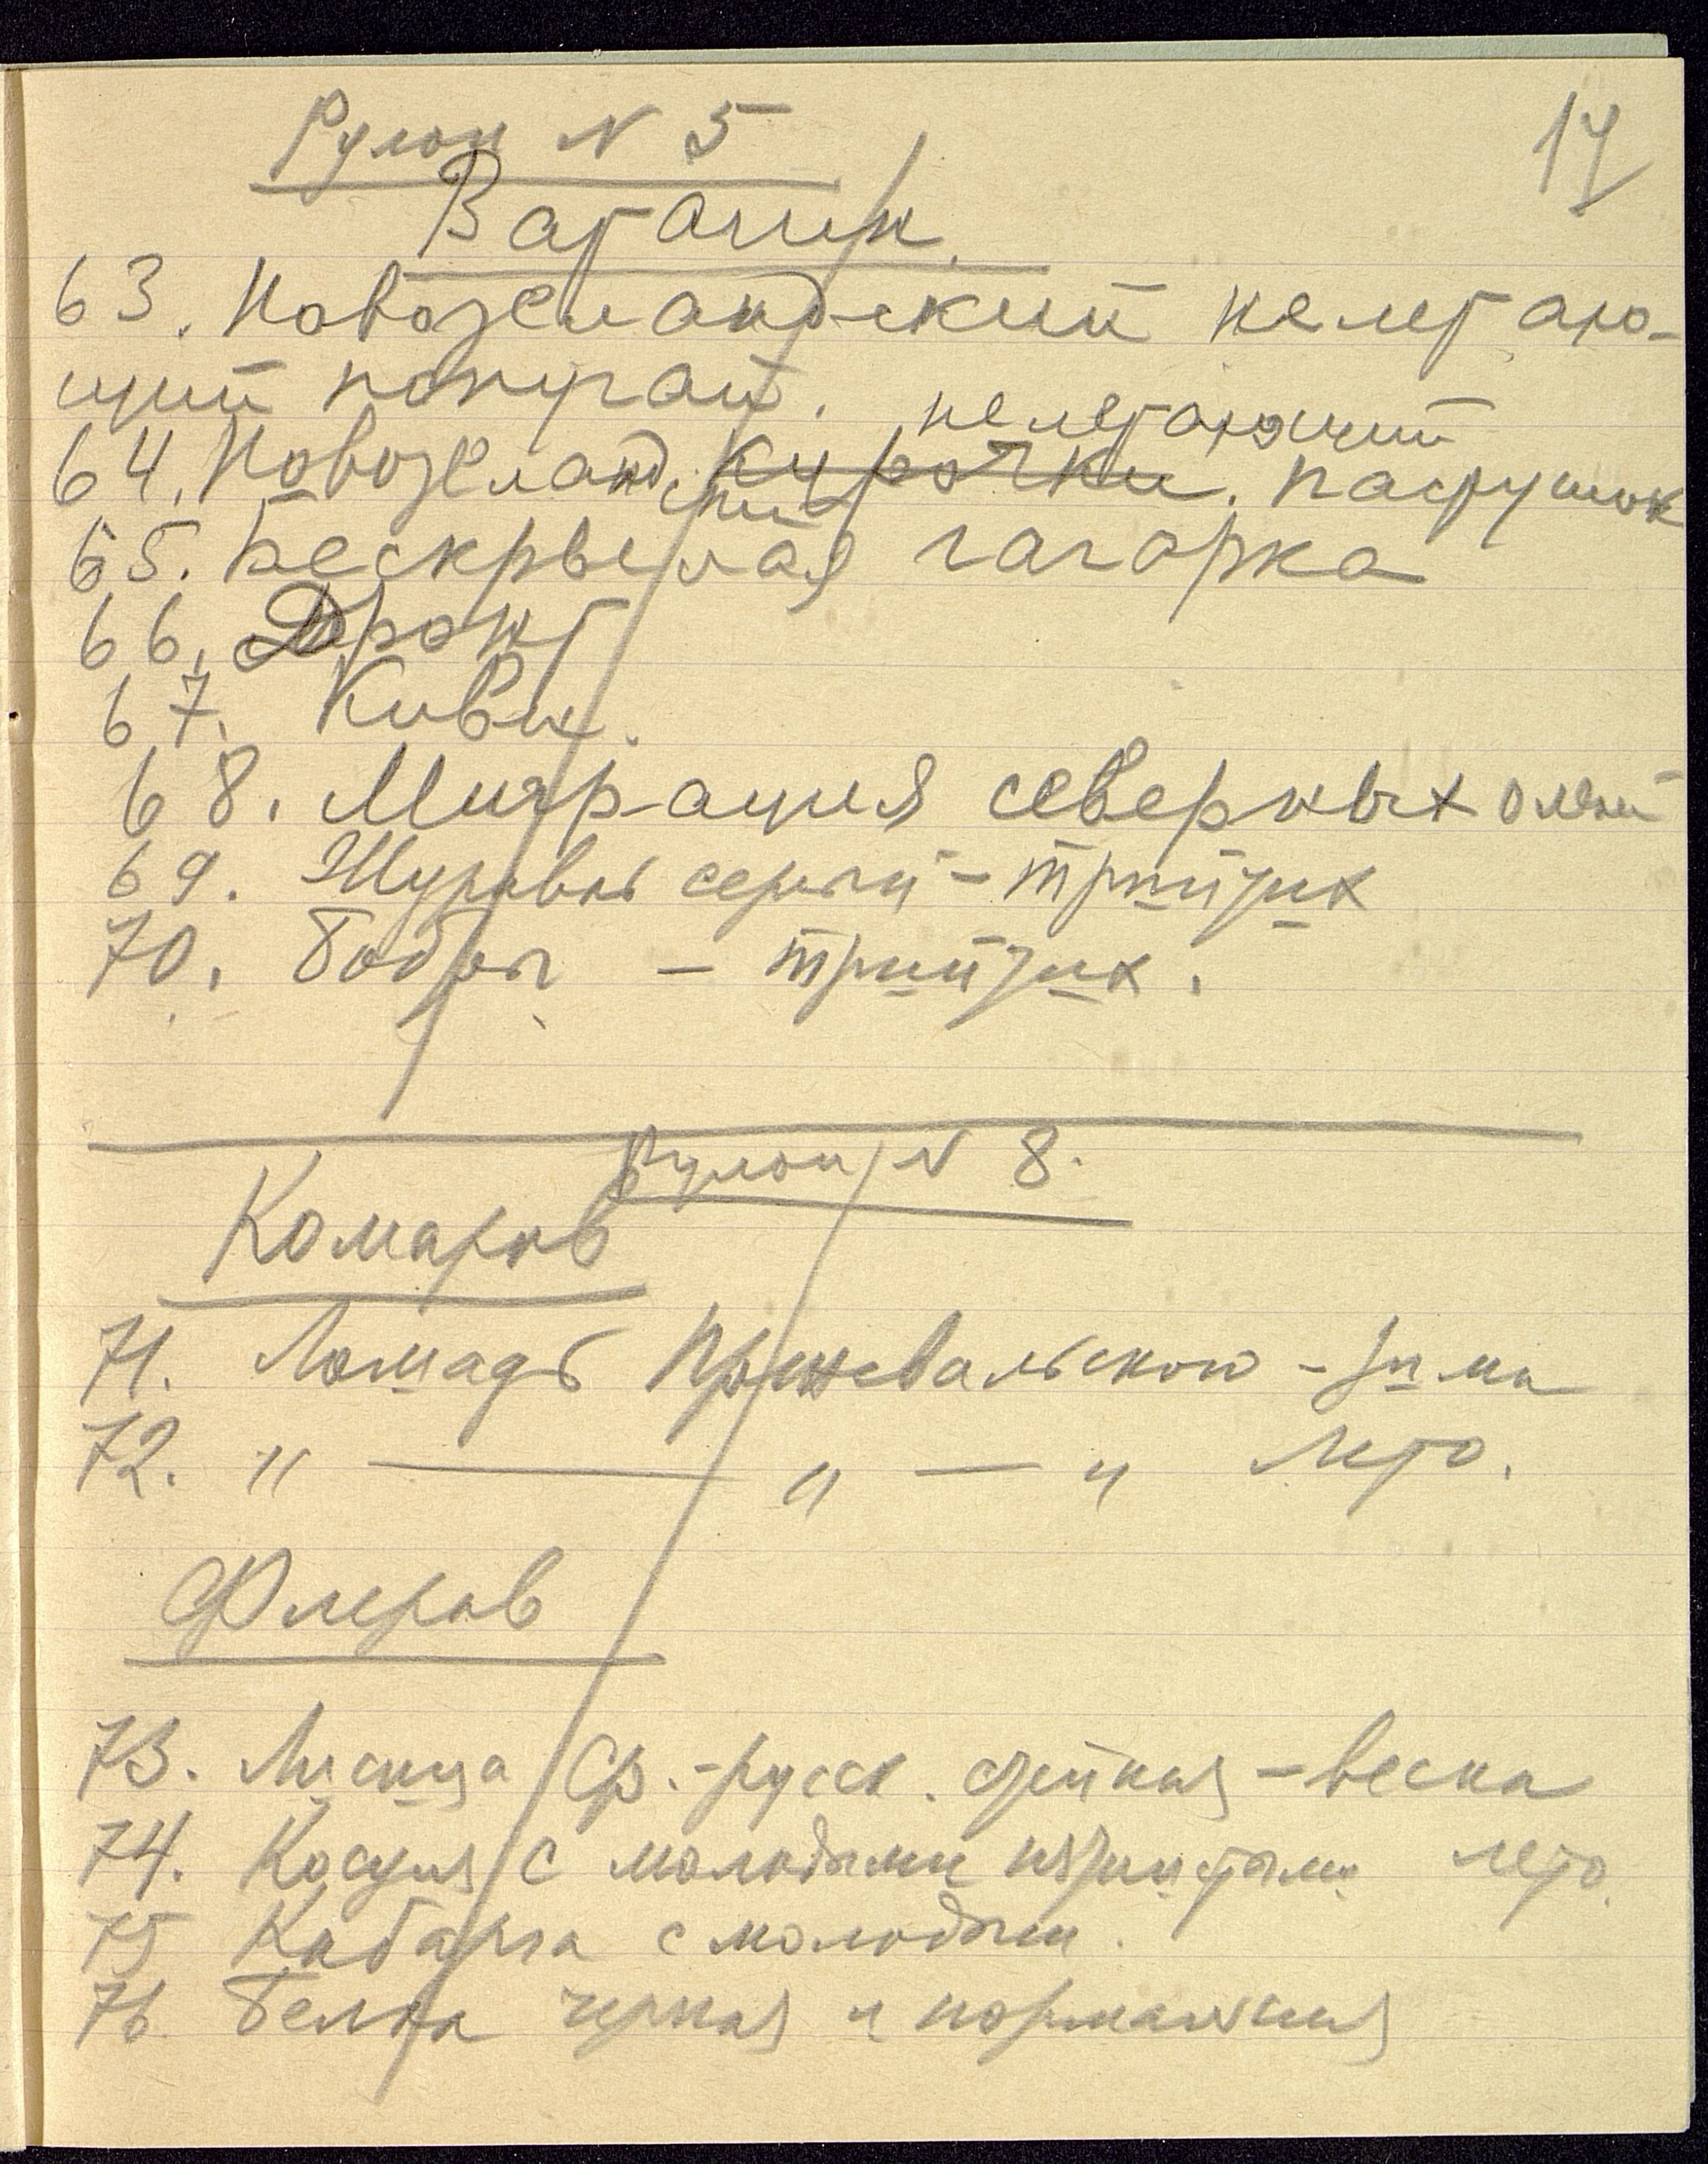 17
Рулон N 5
Ватагин.
63. Новозеландский нелетаю-
щий попугай.
нелетающий
64. Новозеландский курочки. пастушок
65. Бескрылая гагарка
66. Дронт
67. Киви.
68. Миграция северных оленей
69. Журавль серый – триптих
70. Бобры – триптих.
Рулон N 8.
Комаров
71. Лошадь Пржевальского – зима
72. " — " — " лето.
Флеров
73. Лисица Ср.-русск. степная – весна
74. Косуля с молодыми лето.
75 Кабарга с молодыми.
76. Белка черная и нормальная